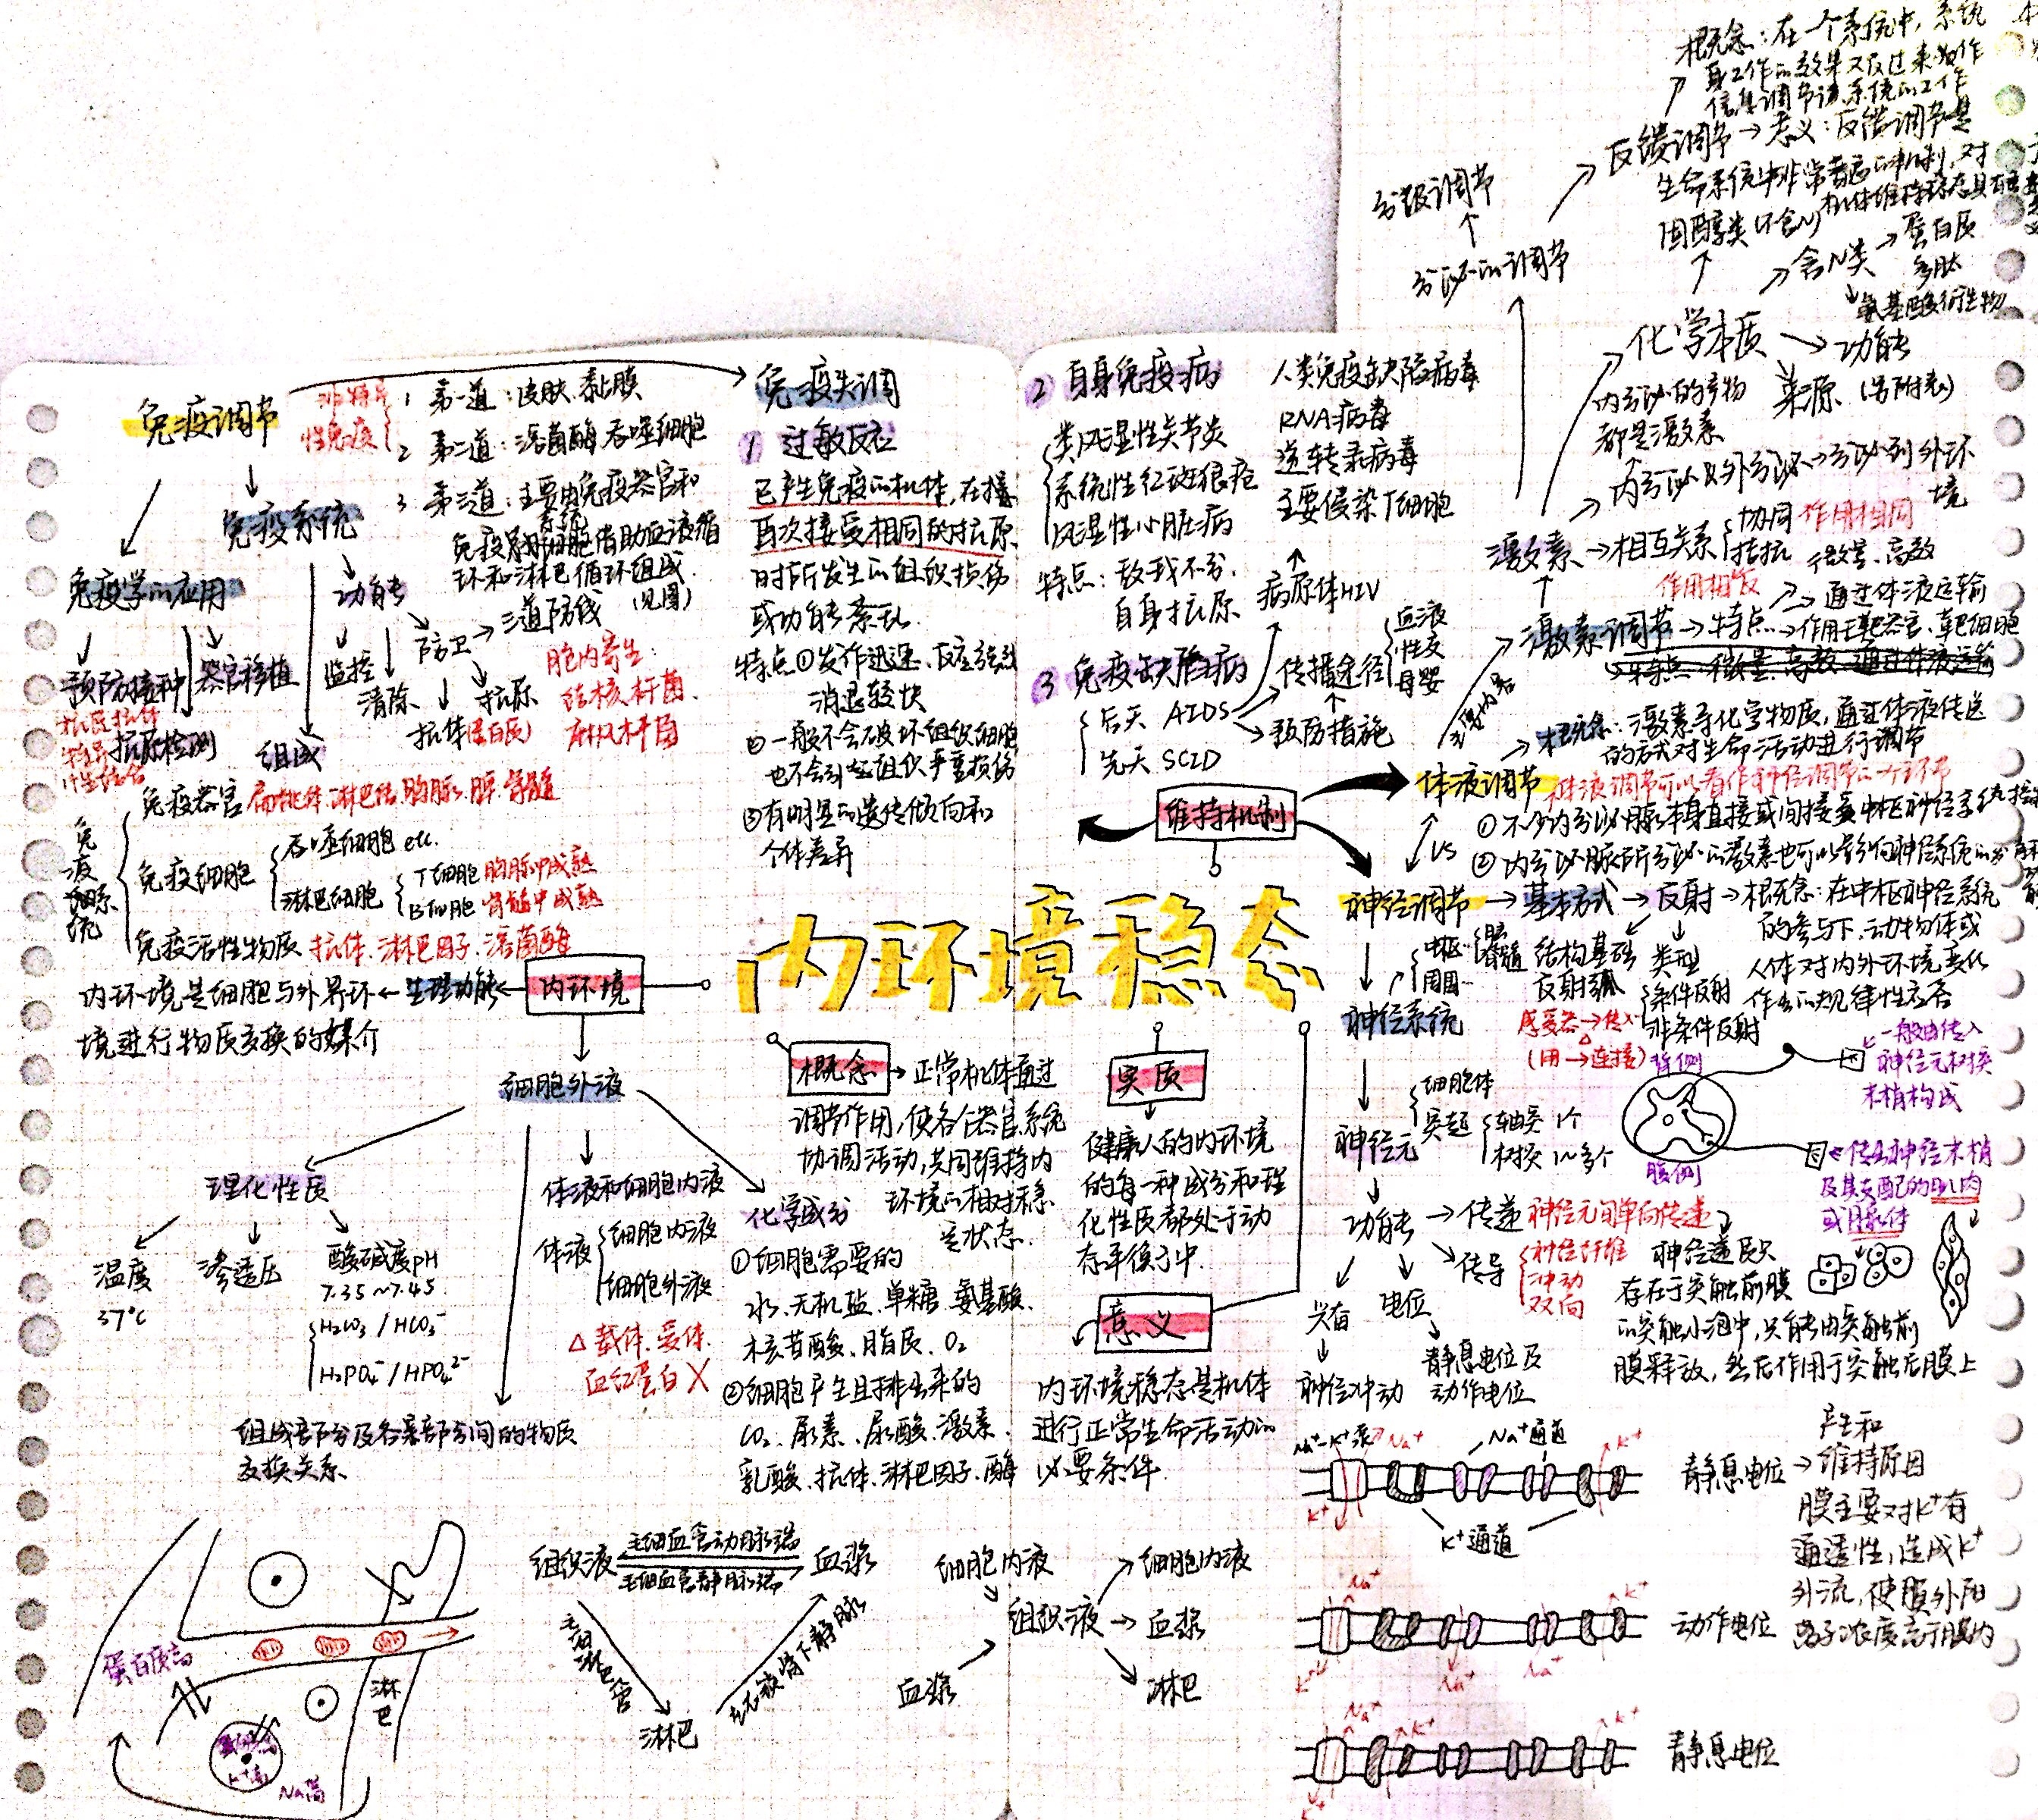 免疫调节
非特异
性免疫
1 第一道：皮肤.黏膜
2 第二道：溶菌酶 吞噬细胞
3 第三道：主要由免疫器官和
免疫细胞借助血液循
环和淋巴循环组成.
(见图)
免疫系统
免疫学的应用
预防接种
器官移植
抗原检测
抗原抗体
特异
性结合
功能
监控
清除
防卫→三道防线
抗体(蛋白质)
抗原
胞内寄生:
结核杆菌.
麻风杆菌
组成
免疫系统
免疫器官 扁桃体.淋巴结.胸腺.脾.骨髓
免疫细胞
吞噬细胞 etc.
淋巴细胞
T细胞 胸腺中成熟
B细胞 骨髓中成熟
免疫活性物质 抗体.淋巴因子.溶菌酶
免疫失调
1 过敏反应
已产生免疫的机体,在
再次接受相同的抗原
时所发生的组织损伤
或功能紊乱.
特点①发作迅速.反应强烈
消退较快
②一般不会破坏组织细胞
也不会引起组织严重损伤
③有明显的遗传倾向和
个体差异
2 自身免疫病
类风湿性关节炎
系统性红斑狼疮
风湿性心脏病
特点：敌我不分.
自身抗原
3 免疫缺陷病
后天 AIDS
先天 SCID
人类免疫缺陷病毒
RNA病毒
逆转录病毒
主要侵染T细胞
病原体HIV
传播途径
血液
性交
母婴
预防措施
维持机制
内环境稳态
内环境
生理功能
内环境是细胞与外界环
境进行物质交换的媒介
细胞外液
理化性质
温度
37℃
渗透压
酸碱度pH
7.35~7.45
H₂CO₃ / HCO₃⁻
H₂PO₄⁻/HPO₄²⁻
组成部分及各部分间的物质
交换关系
体液和细胞内液
体液
细胞内液
细胞外液
△ 载体.受体.
血红蛋白 X
化学成分
①细胞需要的
水.无机盐.单糖.氨基酸.
核苷酸.脂质.O₂
②细胞产生且排出来的
CO₂.尿素.尿酸.激素.
乳酸.抗体.淋巴因子.酶
概念→正常机体通过
调节作用,使各个器官系统
协调活动,共同维持内
环境的相对稳
定状态.
实质
健康人的内环境
的每一种成分和理
化性质都处于动
态平衡之中.
意义
内环境稳态是机体
进行正常生命活动的
必要条件.
蛋白质高
淋巴
K⁺高
Na高
组织液
毛细血管动脉端
毛细血管静脉端
血浆
毛细淋巴管
经锁骨下静脉
淋巴
细胞内液
血浆
组织液
细胞内液
血浆
淋巴
概念：在一个系统中,系统
身工作的效果又反过来作
信息调节该系统的工作
反馈调节→意义：反馈调节是
生命系统中非常普遍的机制,对
机体维持稳态具有重
分级调节
分泌的调节
固醇类(不含N)
含N类→蛋白质
多肽
氨基酸衍生物
化学本质
功能
来源 (另附表)
内分泌的产物
都是激素
内分泌 外分泌→分泌到外环
境
激素→相互关系
协同 作用相同
拮抗
作用相反
微量.高效
通过体液运输
激素调节→特点→作用于靶器官.靶细胞
主要内容
概念：激素等化学物质,通过体液传送
的方式对生命活动进行调节
体液调节
体液调节可以看作神经调节的一个环节
①不少内分泌腺本身直接或间接受中枢神经系统
②内分泌腺所分泌的激素也可以影响神经系统的
VS
神经调节→基本方式→反射→概念：在中枢神经系统
的参与下,动物体或
人体对内外环境变化
作出的规律性应答
中枢
周围
脑
脊髓
结构基础
反射弧
类型
条件反射
非条件反射
感受器→传入
(用→连接)
神经系统
背侧
腹侧
一般由传入
神经元树突
末梢构成
传出神经末梢
及其支配的肌肉
或腺体
神经元
细胞体
突起
轴突 1个
树突 1~多个
功能→传递 神经元间单向传递
传导
神经纤维
冲动
双向
兴奋
神经冲动
电位
静息电位及
动作电位
神经递质只
存在于突触前膜
的突触小泡中,只能由突触前
膜释放,然后作用于突触后膜上
Na⁺-K⁺泵
Na⁺
Na⁺通道
K⁺
K⁺
K⁺通道
静息电位
产生和
维持原因
膜主要对K⁺有
通透性,造成K⁺
外流,使膜外阳
离子浓度高于膜内
Na⁺
K⁺
K⁺
Na⁺
Na⁺
动作电位
Na⁺
K⁺
K⁺
K⁺
静息电位